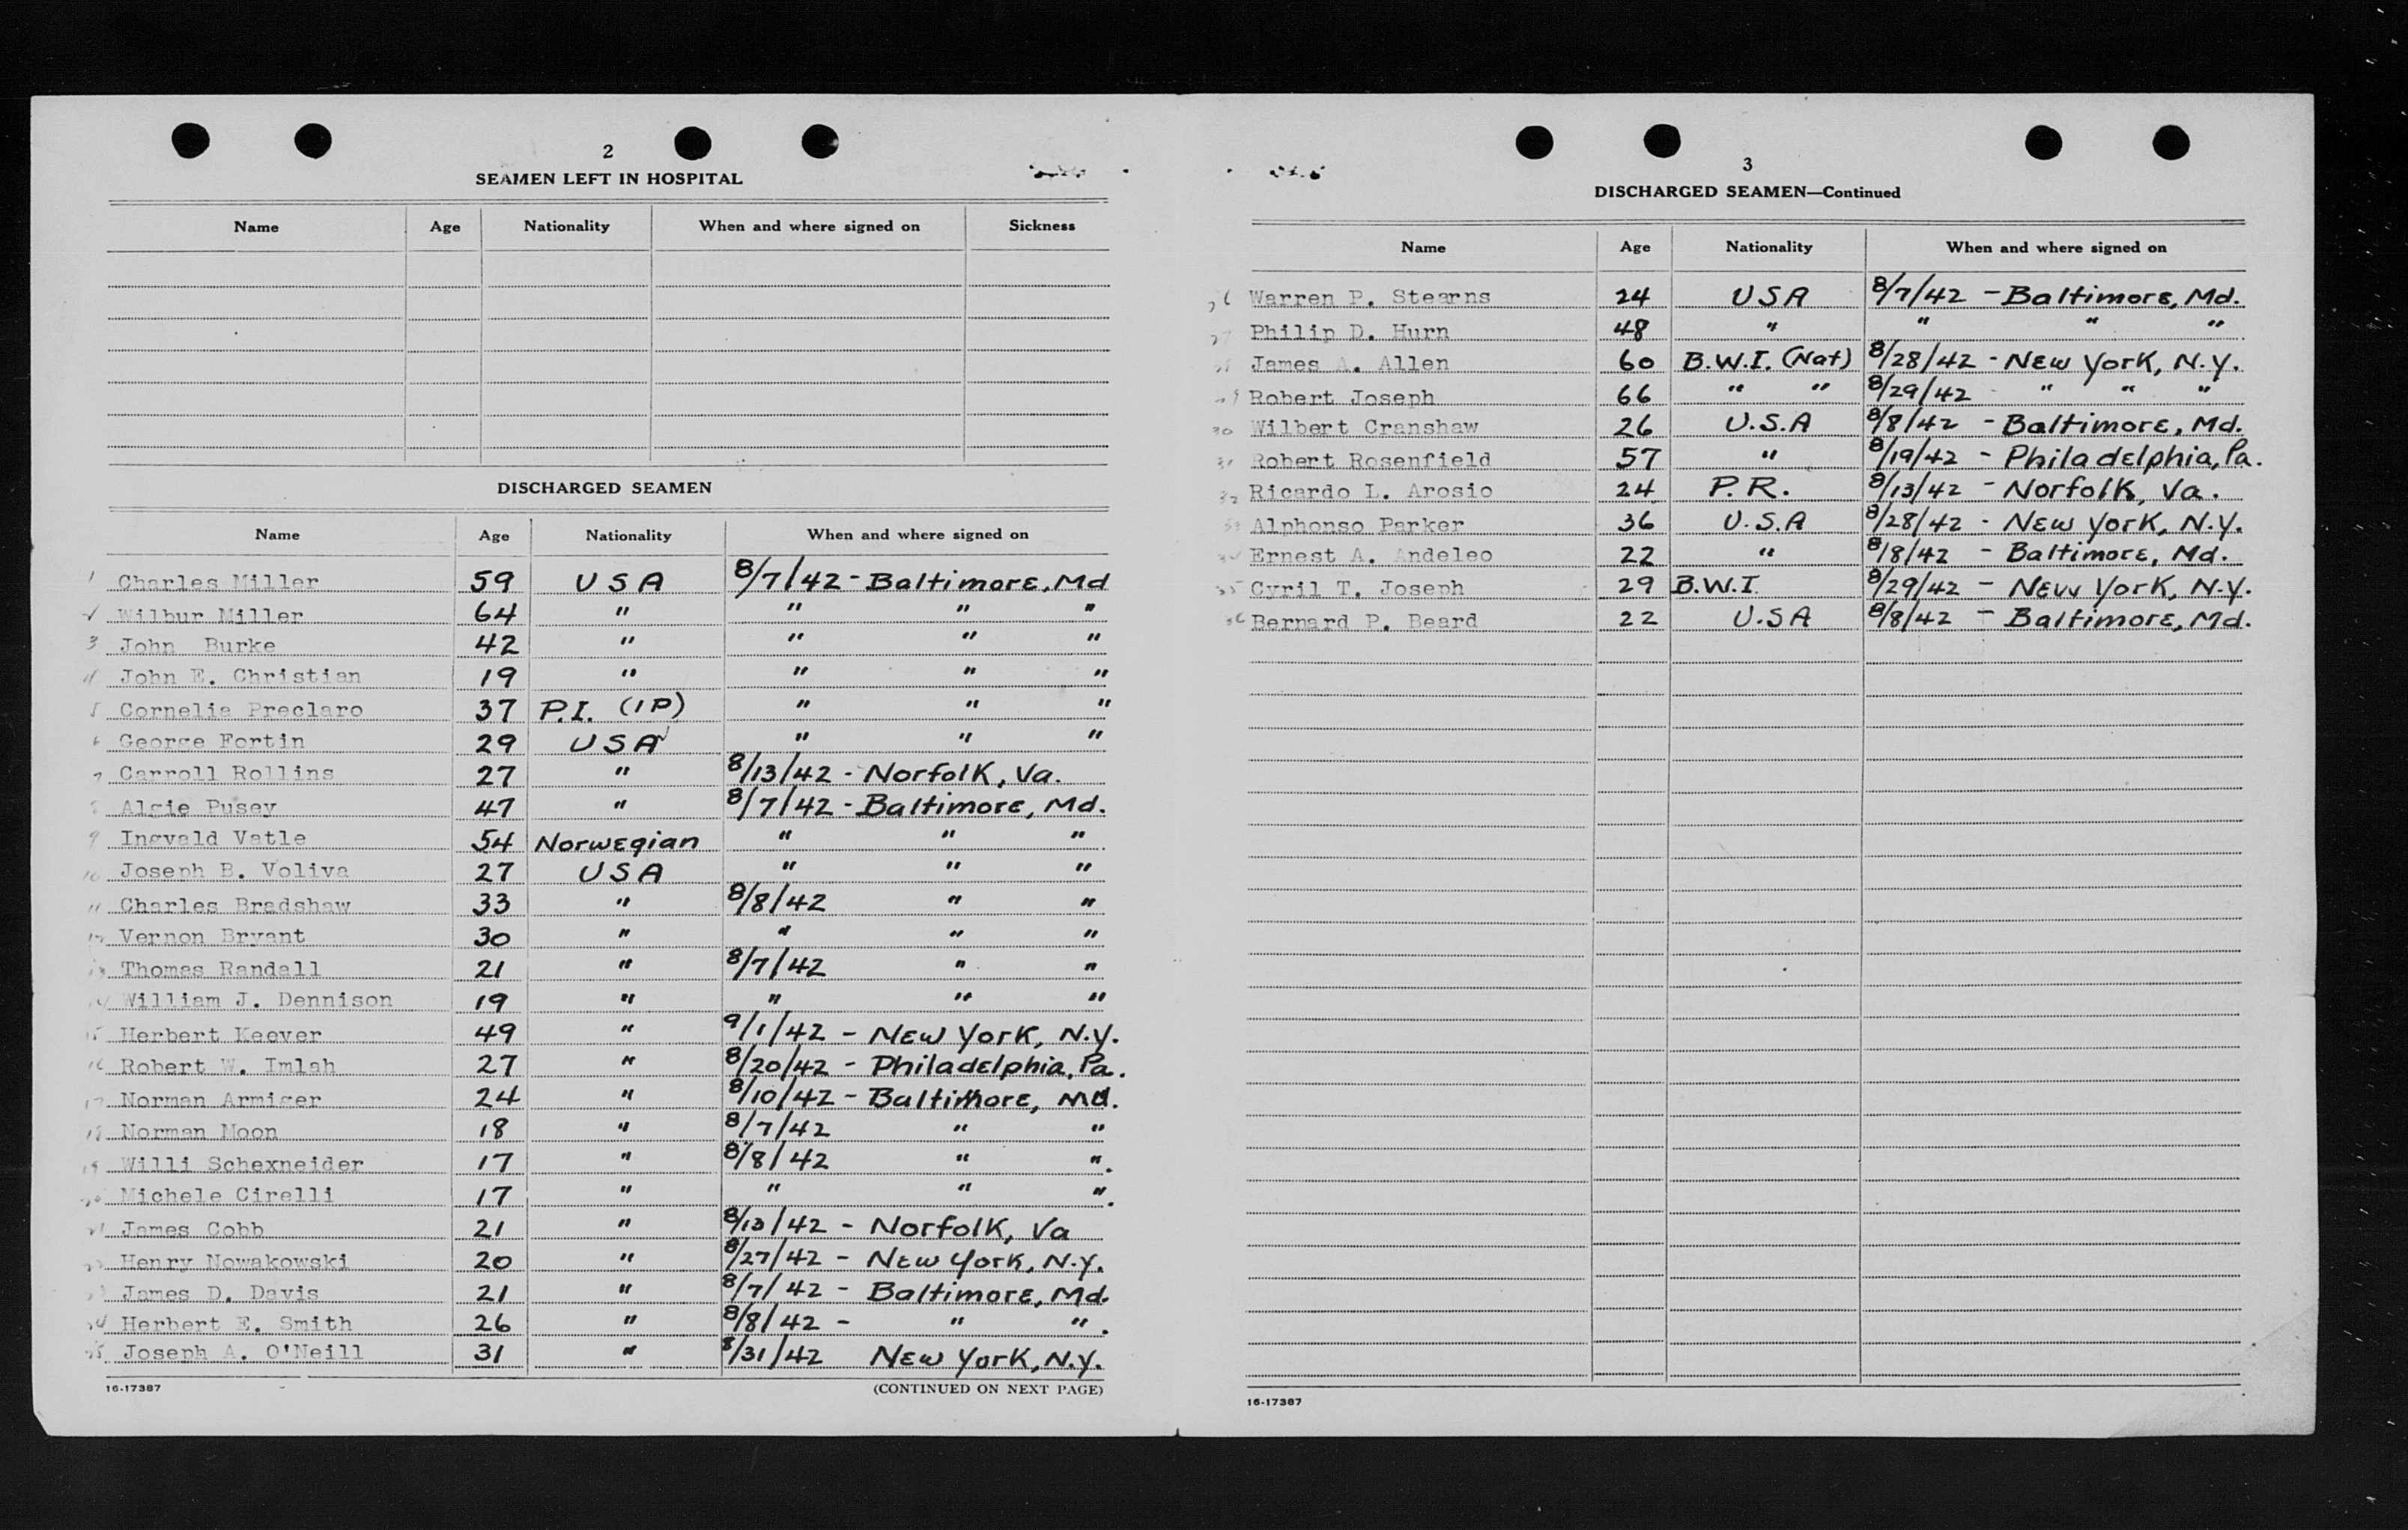 2
SEAMEN LEFT IN HOSPITAL
Name Age Nationality When and where signed on Sickness
DISCHARGED SEAMEN
Name Age Nationality When and where signed on
1 Charles Miller 59 USA 8/7/42 - Baltimore, Md
2 Wilbur Miller 64 " " " "
3 John Burke 42 " " " "
4 John E. Christian 19 " " " "
5 Cornelio Preclaro 37 P.I. (IP) " " "
6 George Fortin 29 USA " " "
7 Carroll Rollins 27 " 8/13/42 - Norfolk, Va.
8 Algie Pusey 47 " 8/7/42 - Baltimore, Md.
9 Ingvald Vatle 54 Norwegian " " "
10 Joseph B. Voliva 27 USA " " "
11 Charles Bradshaw 33 " 8/8/42 " "
12 Vernon Bryant 30 " " " "
13 Thomas Randall 21 " 8/7/42 " "
14 William J. Dennison 19 " " " "
15 Herbert Keever 49 " 9/1/42 - New York, N.Y.
16 Robert W. Imlah 27 " 8/20/42 - Philadelphia, Pa.
17 Norman Armiger 24 " 8/10/42 - Baltimore, Md.
18 Norman Moon 18 " 8/7/42 " "
19 Willi Schexneider 17 " 8/8/42 " ".
20 Michele Cirelli 17 " " " ".
21 James Cobb 21 " 8/13/42 - Norfolk, Va
22 Henry Nowakowski 20 " 8/27/42 - New York, N.Y.
23 James D. Davis 21 " 8/7/42 - Baltimore, Md.
24 Herbert E. Smith 26 " 8/8/42 - " ".
25 Joseph A. O'Neill 31 " 8/31/42 New York, N.Y.
16-17387 (CONTINUED ON NEXT PAGE)
3
DISCHARGED SEAMEN—Continued
Name Age Nationality When and where signed on
26 Warren P. Stearns 24 USA 8/7/42 - Baltimore, Md.
27 Philip D. Hurn 48 " " " "
28 James A. Allen 60 B.W.I. (Nat) 8/28/42 - New York, N.Y.
29 Robert Joseph 66 " " 8/29/42 " " "
30 Wilbert Cranshaw 26 U.S.A 8/8/42 - Baltimore, Md.
31 Robert Rosenfield 57 " 8/19/42 - Philadelphia, Pa.
32 Ricardo L. Arosio 24 P.R. 8/13/42 - Norfolk, Va.
33 Alphonso Parker 36 U.S.A 8/28/42 - New York, N.Y.
34 Ernest A. Andeleo 22 " 8/8/42 - Baltimore, Md.
35 Cyril T. Joseph 29 B.W.I. 8/29/42 - New York, N.Y.
36 Bernard P. Beard 22 U.S.A 8/8/42 - Baltimore, Md.
16-17387